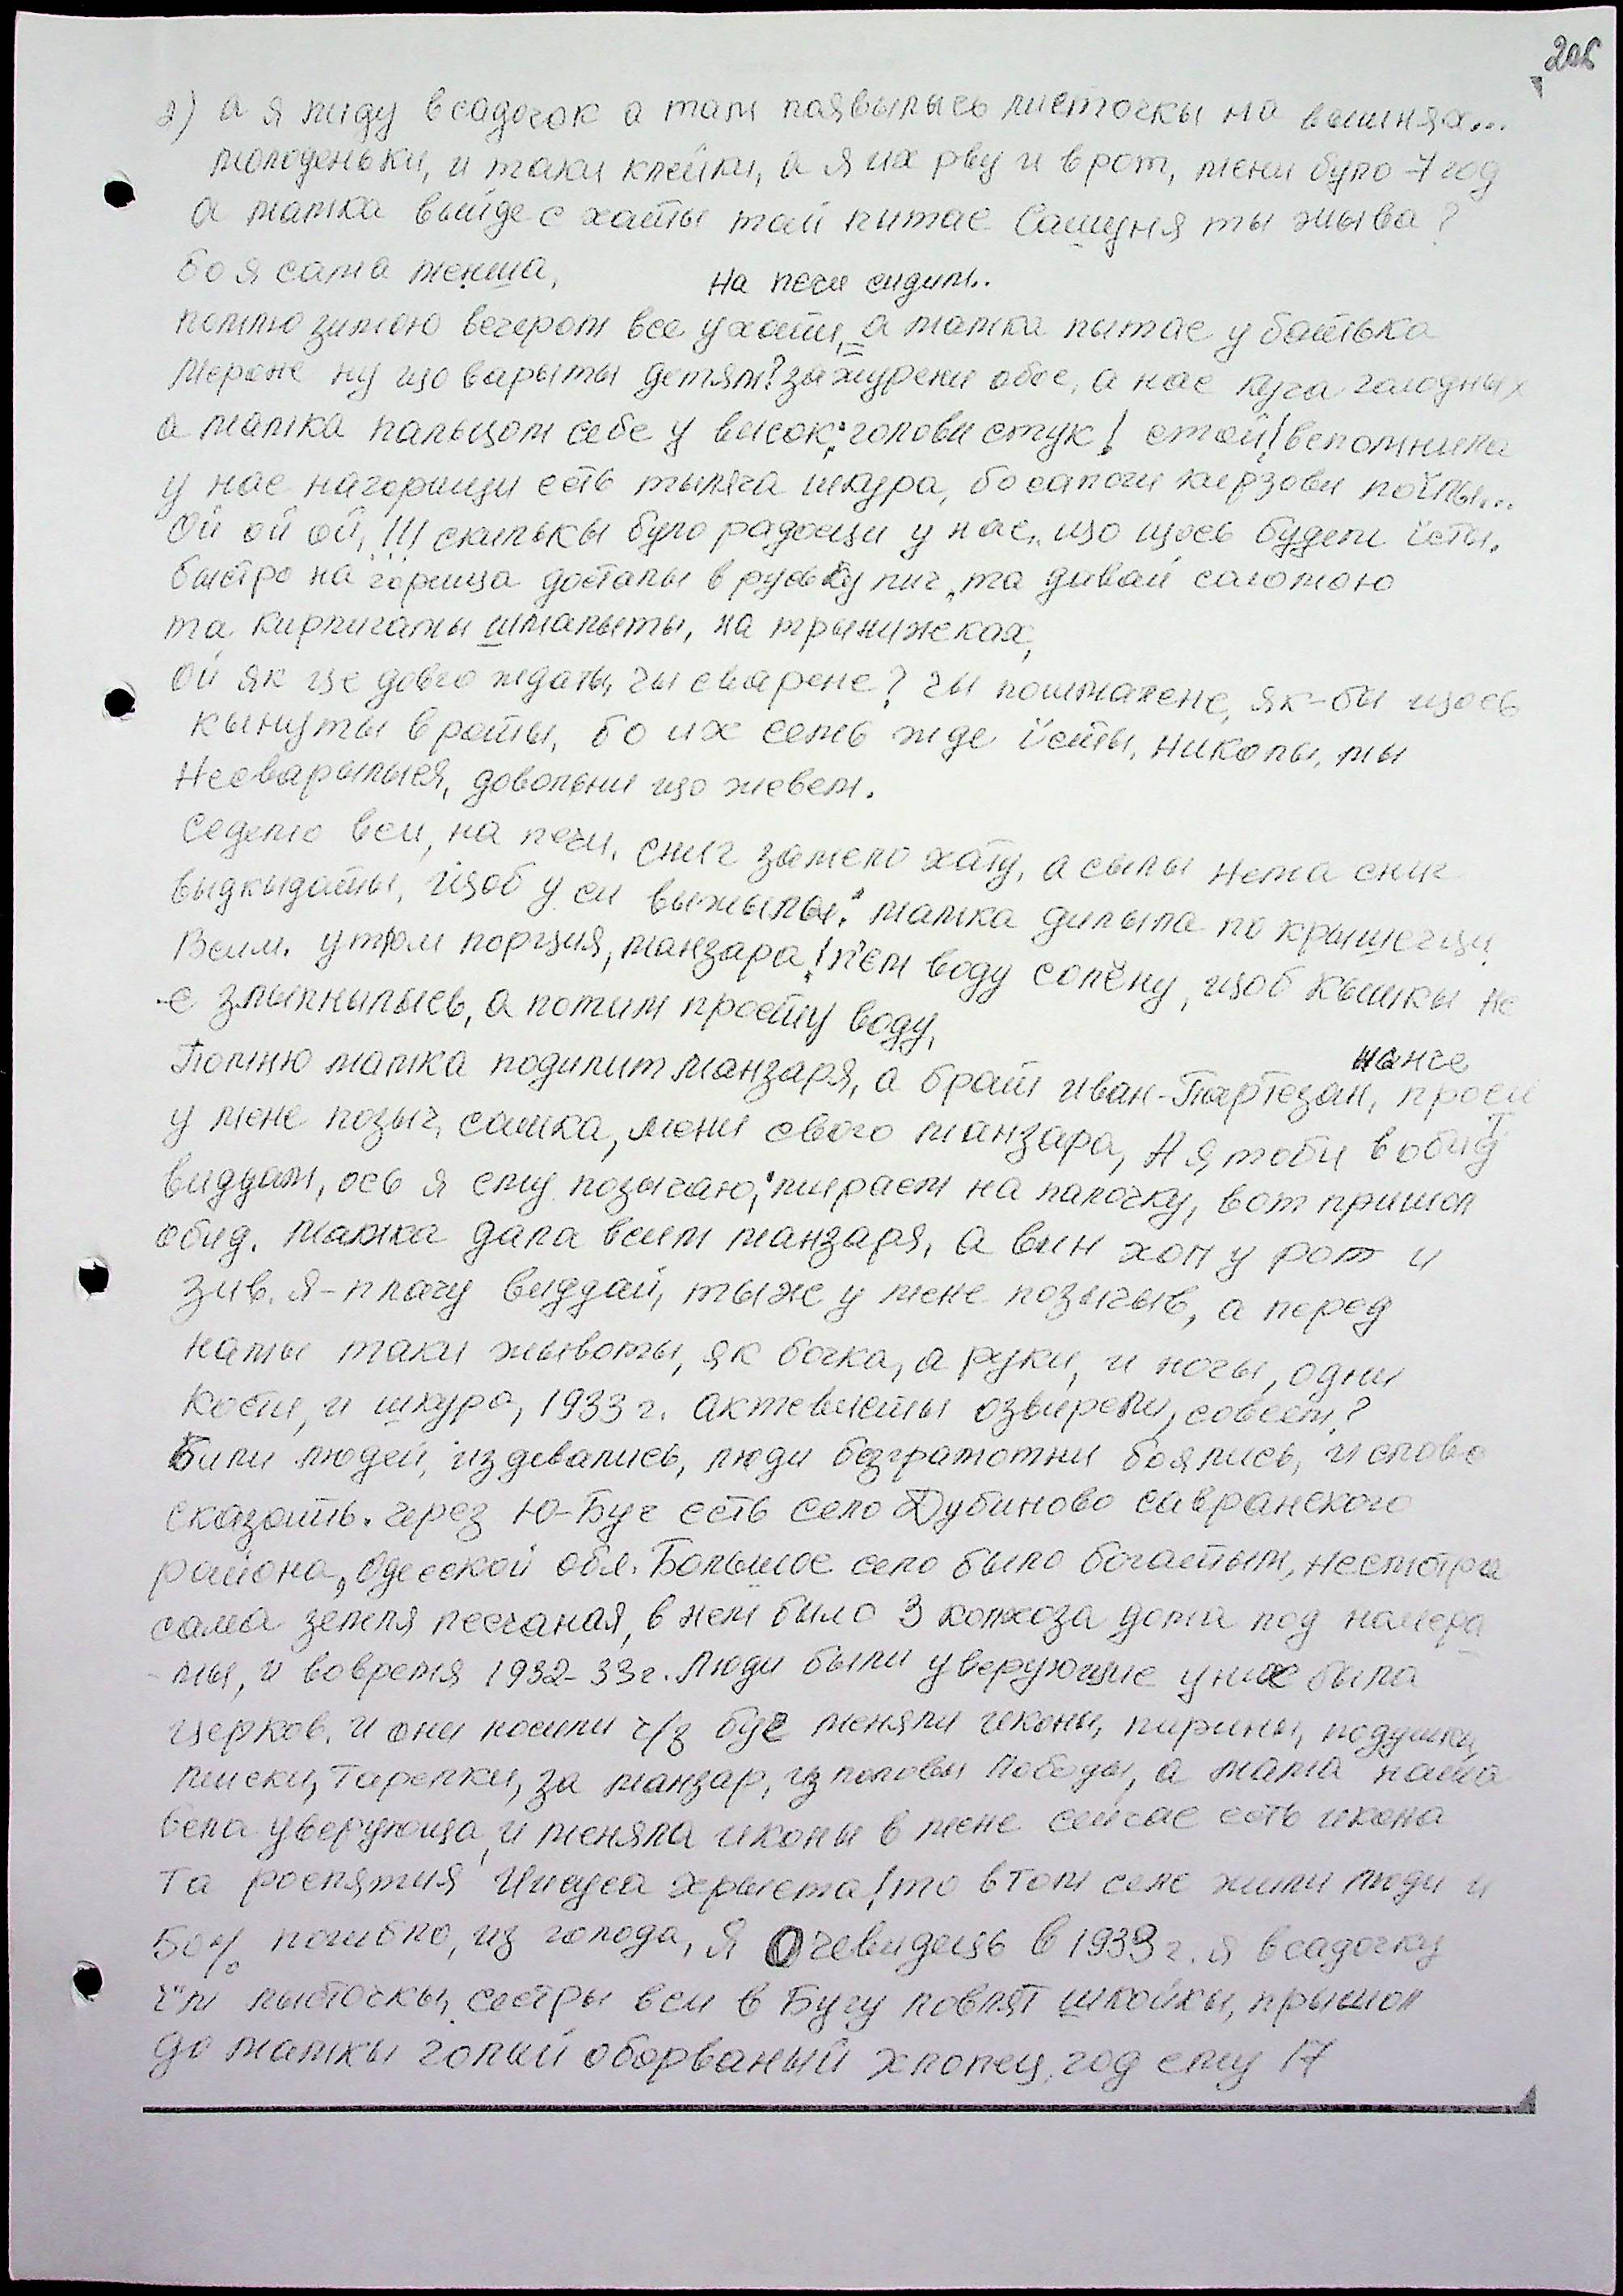 206
2) а я пиду в садочок а там паявылысь листочкы на вышнях...
молоденьки, и таки клейки, а я их рву и в рот, мени було 7 год
а мамка выйде с хаты тай питае Сашуня ты жыва?
бо я сама менша,
на печи сидим..
помню зимою вечером все у хати, а мамка пытае у батька
Мероне ну що варыты детям? зажурени обое, а нас куча голодных
а мамка пальцом себе у висок, головы стук! стой! вспомнила
у нас нагорищи есть тыляча шкура, бо сапоги кирзови пойлы...
Ой ой ой, !!! скилькы було радощи у нас, що щось будем їсты.
быстро на горища досталы в руську пич, та давай соломою
та кирпичамы шмалыты, на трынижеках,
Ой як це довго ждаты, чы сварене? чы пошмалене, як-бы щось
кынуты в роты, бо их семь жде їсты, николы, мы
несварылыся, довольни що жевем.
Седемо вси, на печи, сниг замело хату, а сылы нема сниг
выдкыдаты, щоб у си выжылы. мамка дилыла по крышечци
Всим. утром порция, манзара! п'ем воду солёну, щоб кышкы не
-е злыпнылысь, а потим просту воду,
Помню мамка подилит манзаря, а брат Иван-Партезан, нанче просит
у мене позыч, сашка, мени свого манзара, А я тоби в обид
виддам, ось я ему позычаю, мираем на палочку, вот пришол
обид. мамка дала всим манзаря, а вин хоп у рот и
зив. я-плачу виддай, ты же у мене позычыв, а перед
намы таки жывоты, як бочка, а руки, и ногы, одни
кости, и шкура, 1933 г. актевисты озвирели, совсем?
Били людей, издевались, люди безграмотни боялись, и слово
сказать. через Ю-Буг есть село Дубиново савранского
района, Одесской обл. Большое село было богатым, несмотря
сама земля песчаная, в нем било 3 колхоза дома под номера
-мы, и вовремя 1932-33 г. Люди были уверующие у них была
церков. и они носили ч/з буг меняли иконы, пирины, подушки,
миски, тарелки, за манзар, из половы победы, а мама наша
бела уверующа, и меняла иконы в мене сейчас есть икона
та роспятия Иисуса хрыста! то в том селе жили люди и
50% погибло, из голода, я Очевидець в 1933 г. я в садочку
ї'м лысточкы, сестры вси в Бугу ловлят шкойкы, прышол
до мамкы голий оборваный хлопец, год ему 17